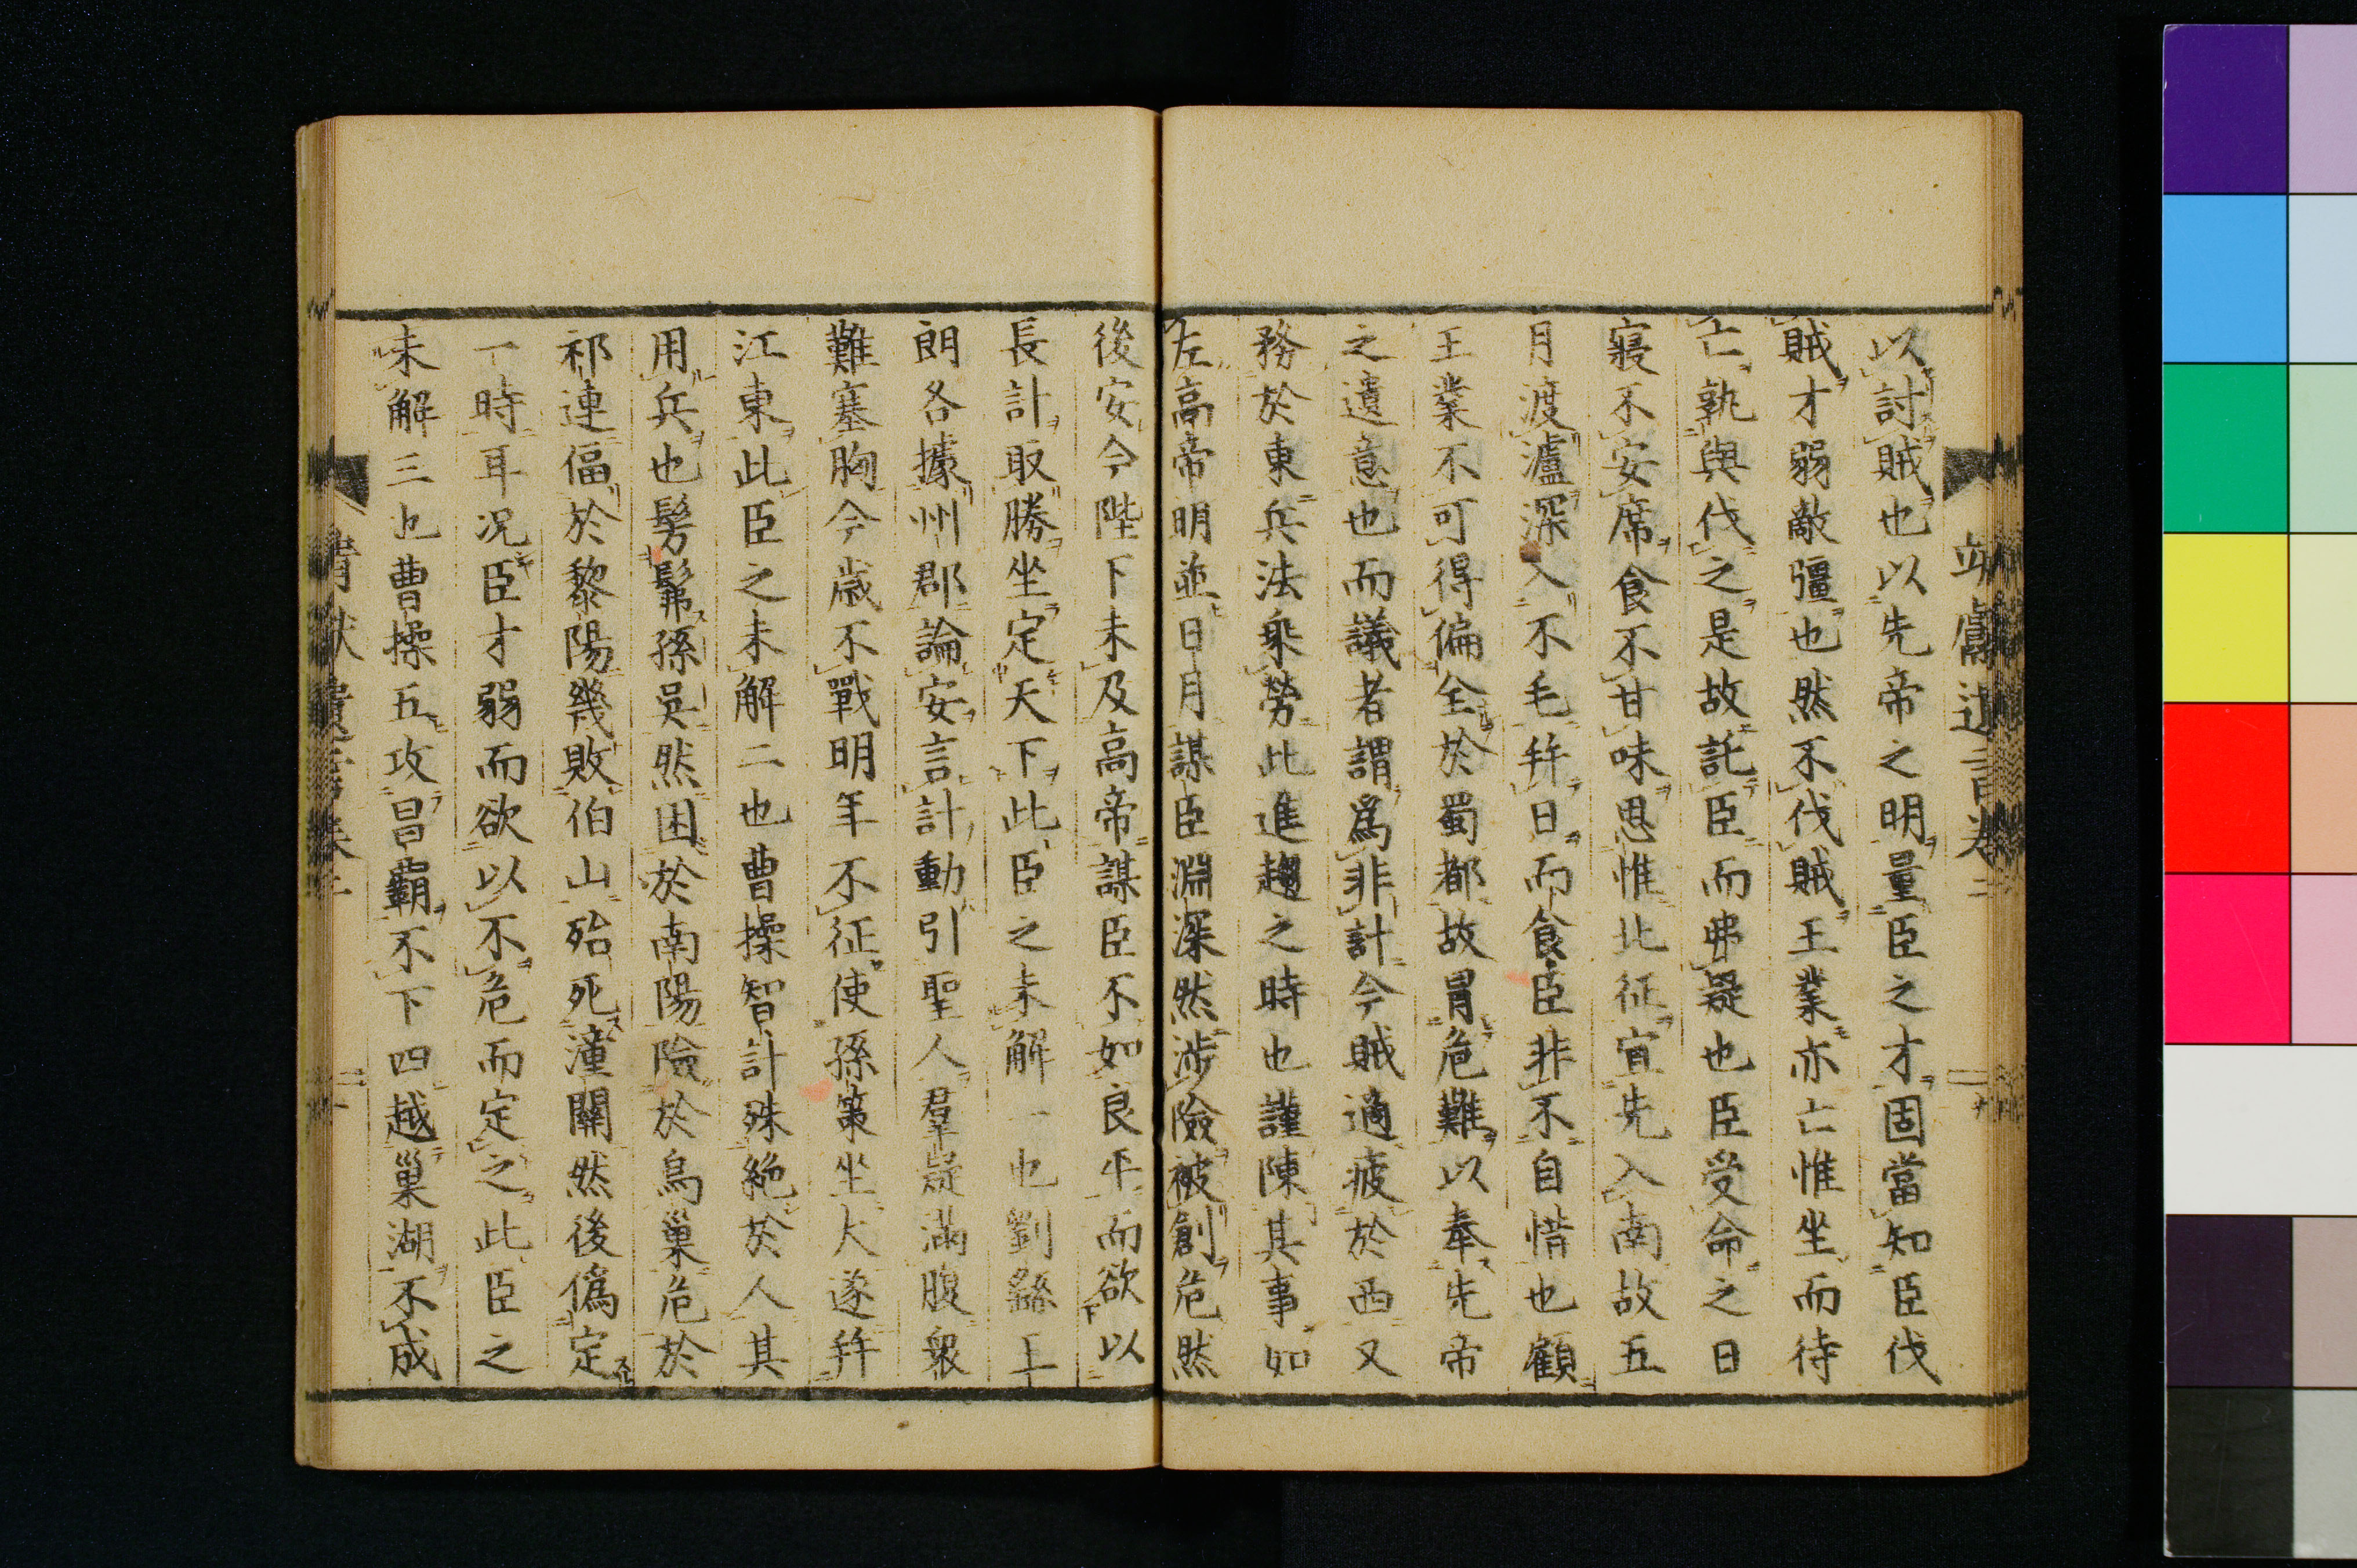 以討賊也以先帝之明量臣之才固當知臣伐
賊才弱敵彊也然不伐賊王業亦亡惟坐而待
亡孰與伐之是故託臣而弗疑也臣受命之日
寢不安席食不甘味思惟北征宜先入南故五
月渡瀘深入不毛幷日而食臣非不自惜也顧
王業不可得偏全於蜀都故冒危難以奉先帝
之遺意也而議者謂爲非計今賊適疲於西又
務於東兵法乘勞此進趨之時也謹陳其事如
左高帝明並日月謀臣淵深然涉險被創危然
後安今陛下未及高帝謀臣不如良平而欲以
長計取勝坐定天下此臣之未解一也劉繇王
朗各據州郡論安言計動引聖人羣疑滿腹衆
難塞胸今歲不戰明年不征使孫策坐大遂幷
江東此臣之未解二也曹操智計殊絶於人其
用兵也髣髴孫吳然困於南陽險於烏巢危於
祁連偪於黎陽幾敗伯山殆死潼關然後僞定
一時耳况臣才弱而欲以不危而定之此臣之
未解三也曹操五攻昌霸不下四越巢湖不成